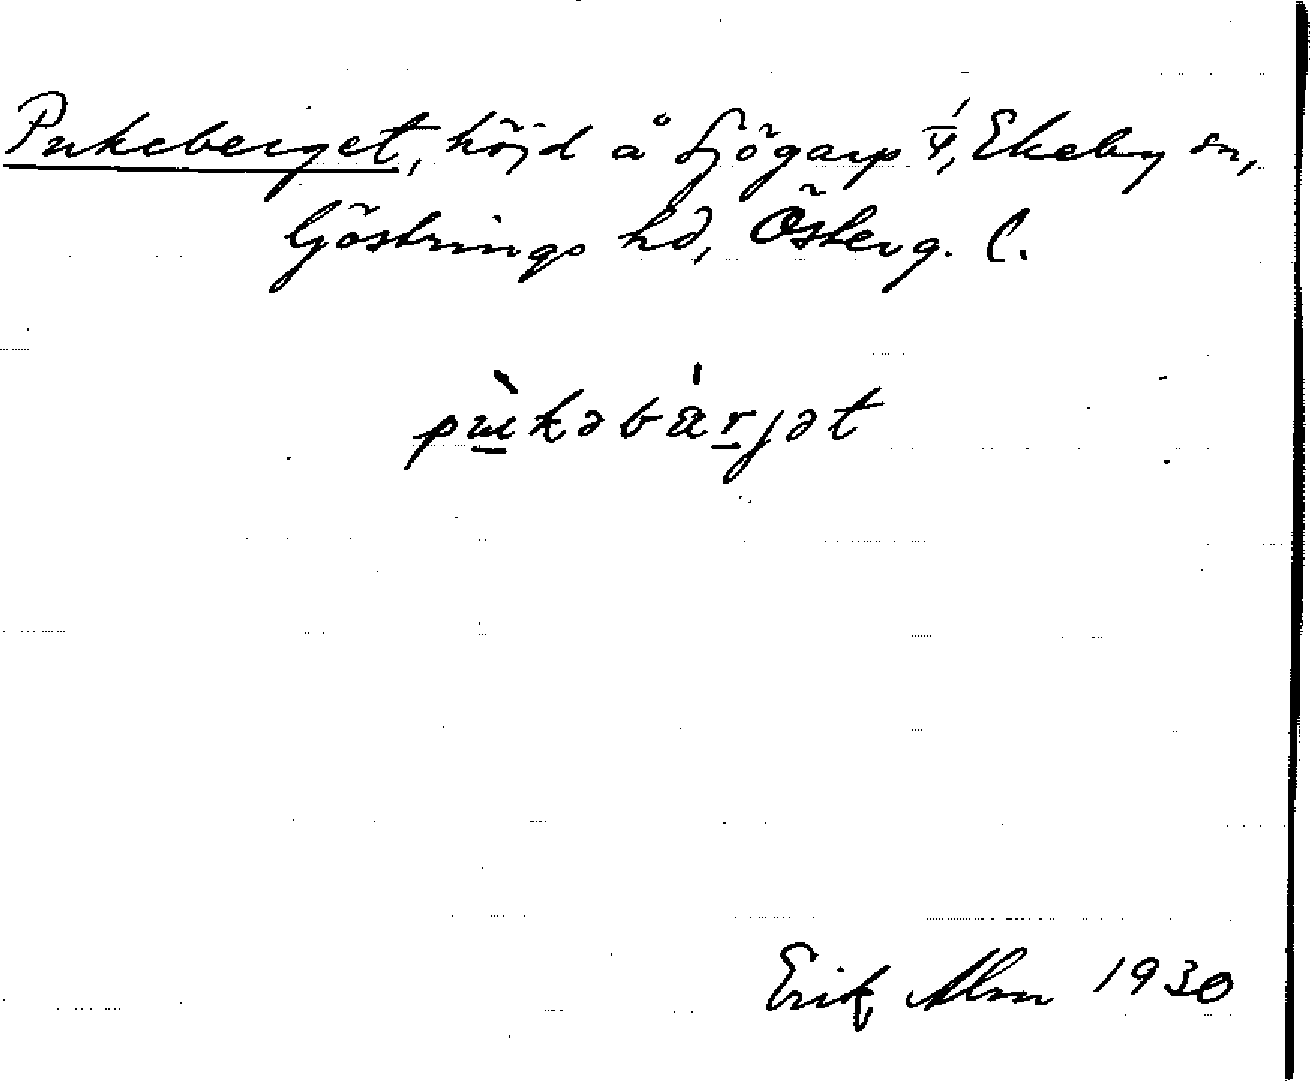 Pukeberget, höjd å Sjögarp 1/4, Ekeby sn,
Göstrings hd, Österg. l.
pùkəbä́rjət
Erik Alm 1930